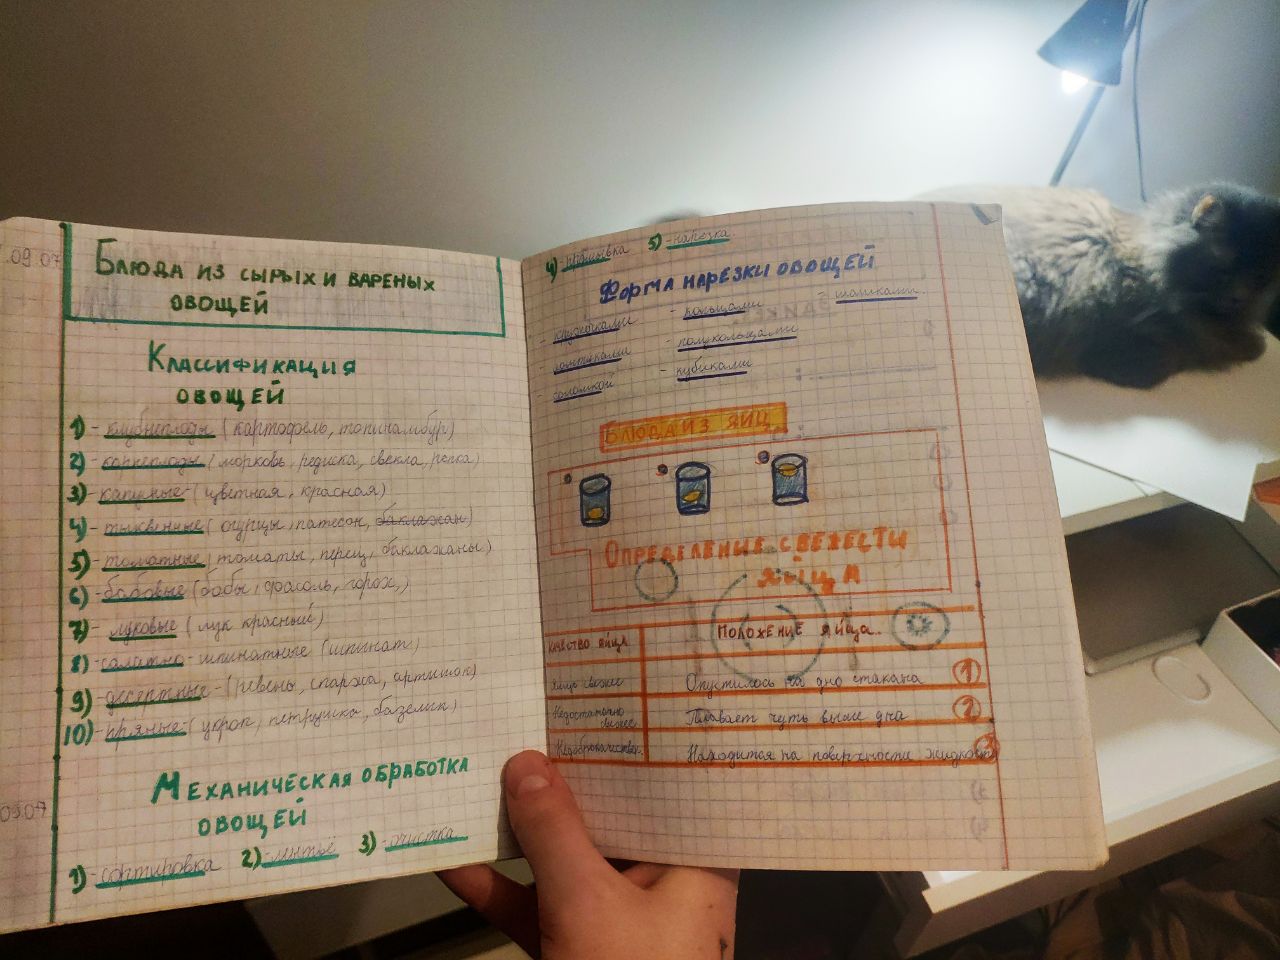 .09.07
Блюда из сырых и вареных
овощей
Классификация
овощей
1) - клубнеплоды (картофель, топинамбур)
2) - корнеплоды (морковь, редиска, свекла, репка)
3) - капусные - (цветная, красная)
4) - тыквенные (огурцы, патесон, баклажан)
5) - томатные (томаты, перец, баклажаны)
6) - бобовые (бобы, фасоль, горох,)
7) - луковые (лук красный)
8) - салатно - шпинатные (шпинат)
9) - десертные - (ревень, спаржа, артишок)
10) - пряные - (укроп, петрушка, базелик)
Механическая обработка
овощей
09.07
1) - сортировка 2) - мытьё 3) - очистка
4) - промывка 5) - нарезка
Форма нарезки овощей
- кружочками - кольцами - шашками.
- ломтиками - полукольцами
- соломкой - кубиками
Блюда из яиц
Определение свежести
яйца
качество яйца Положение яйца..
яйцо свежее Опустилось на дно стакана 1
Недостаточно
свежее Плавает чуть выше дна 2
Недоброкачествен. Находится на поверхности жидкости 3